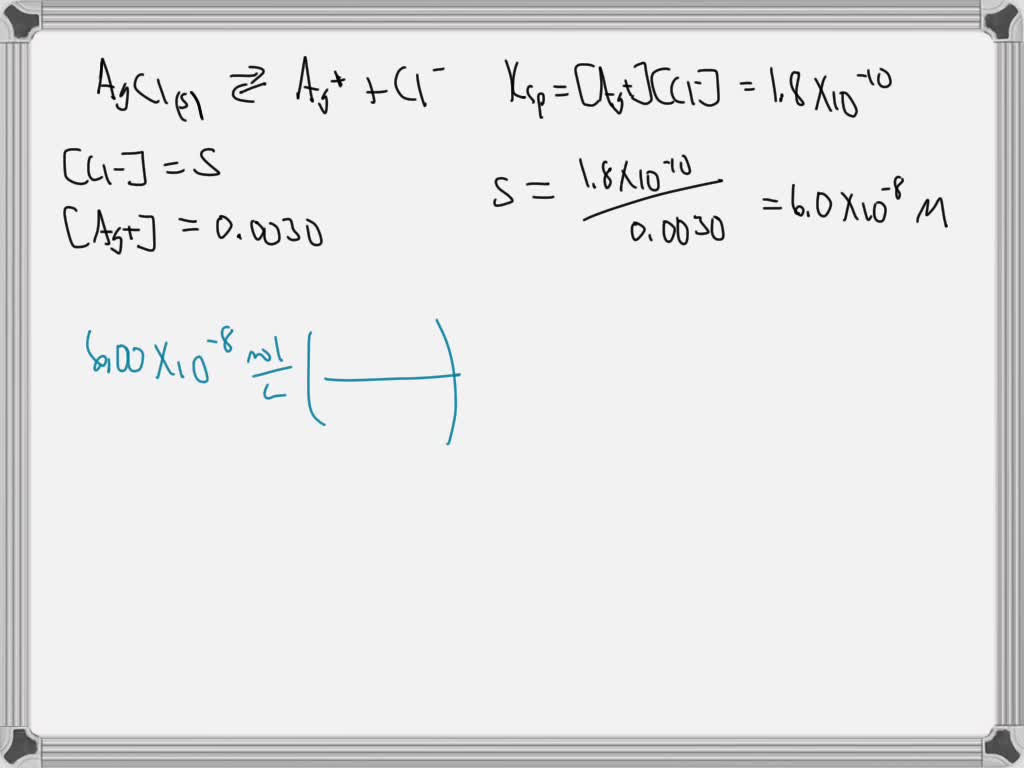 AgCl(s) ⇌ Ag+ + Cl- Ksp = [Ag+][Cl-] = 1.8 X10^-10
[Cl-] = S
[Ag+] = 0.0030
S = 1.8X10^-10 / 0.0030 = 6.0 X10^-8 M
6.00 X10^-8 mol/L ( — )